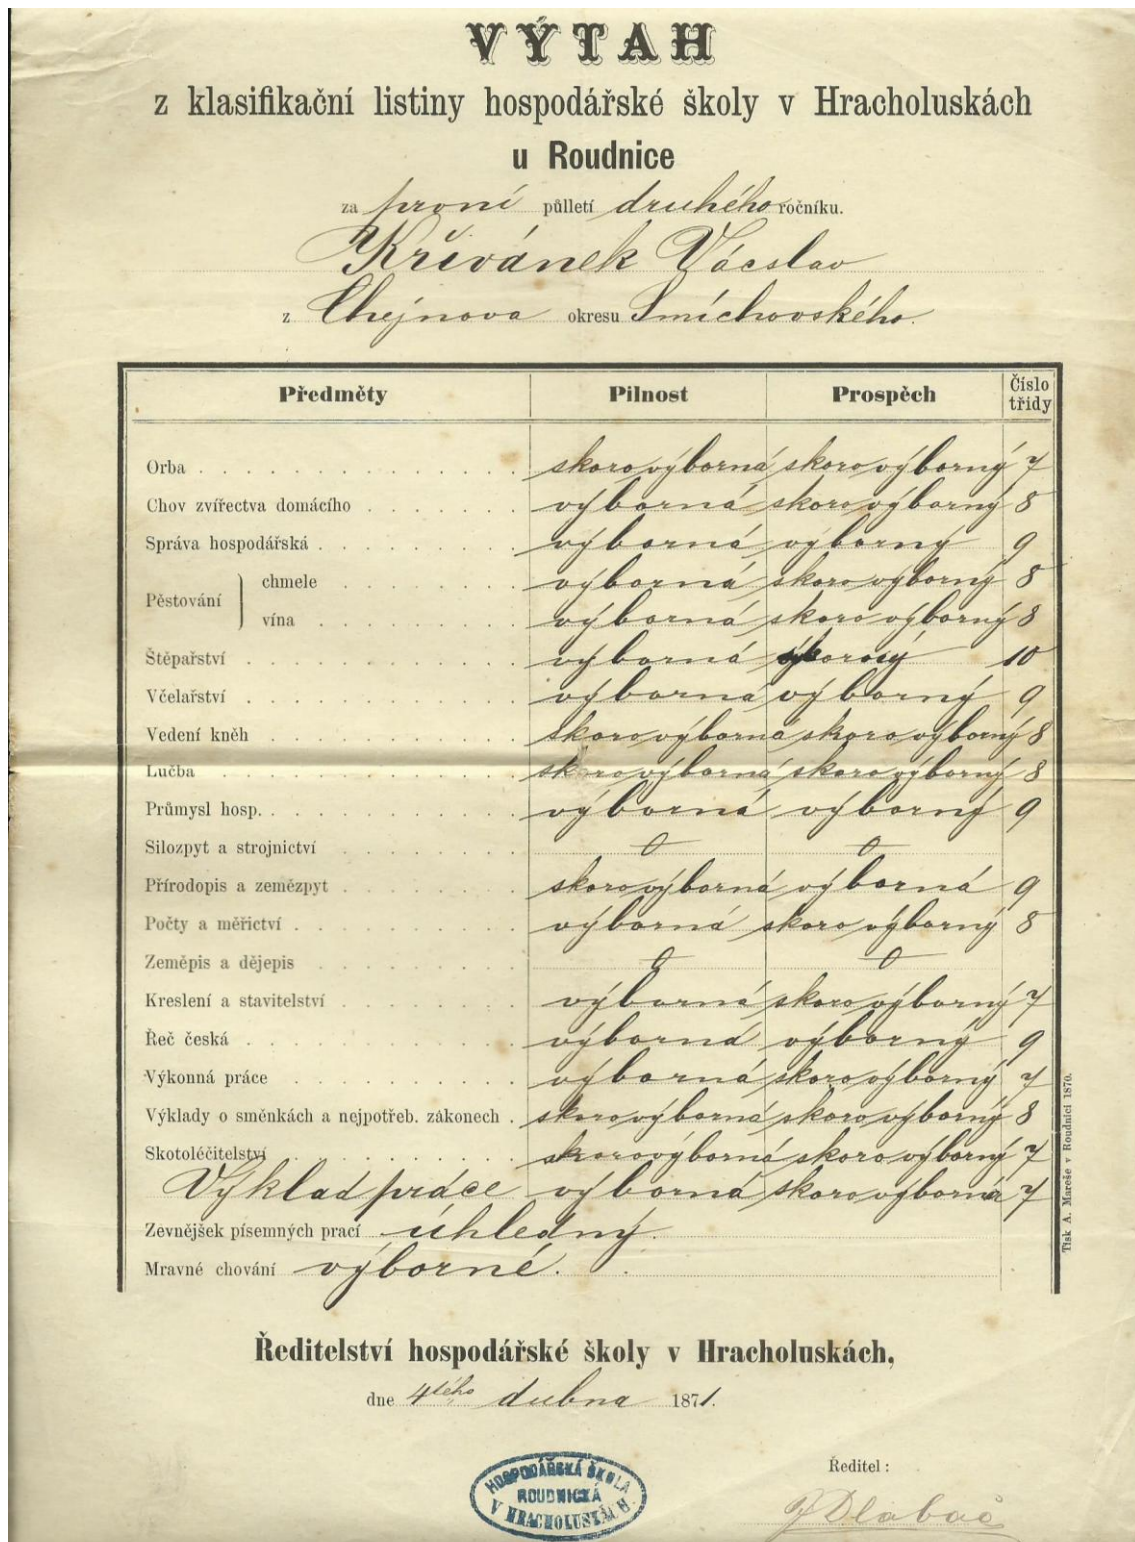 VÝTAH
z klasifikační listiny hospodářské školy v Hracholuskách
u Roudnice
za první půlletí druhého ročníku.
Křivánek Vácslav
z Chejnova okresu Smíchovského.
Předměty Pilnost Prospěch Číslo třídy
Orba skoro výborná skoro výborný 7
Chov zvířectva domácího výborná skoro výborný 8
Správa hospodářská výborná výborný 9
Pěstování chmele výborná skoro výborný 8
vína výborná skoro výborný 8
Štěpařství výborná 10
Včelařství výborná výborný 9
Vedení kněh skoro výborná skoro výborný 8
Lučba skoro výborná skoro výborný 8
Průmysl hosp. výborná výborný 9
Silozpyt a strojnictví 0 0
Přírodopis a zemězpyt skoro výborná výborná 9
Počty a měřictví výborná skoro výborný 8
Zeměpis a dějepis 0 0
Kreslení a stavitelství výborná skoro výborný 7
Řeč česká výborná výborný 9
Výkonná práce výborná skoro výborný 7
Výklady o směnkách a nejpotřeb. zákonech skoro výborná skoro výborný 8
Skotoléčitelství skoro výborná skoro výborný 7
Výklad práce výborná skoro výborná 7
Zevnějšek písemných prací úhledný.
Mravné chování výborné.
Tisk A. Mareše v Roudnici 1870.
Ředitelství hospodářské školy v Hracholuskách,
dne 4tého dubna 1871.
HOSPODÁŘSKÁ ŠKOLA
ROUDNICKÁ
V HRACHOLUSKÁCH.
Ředitel:
J Dlabač